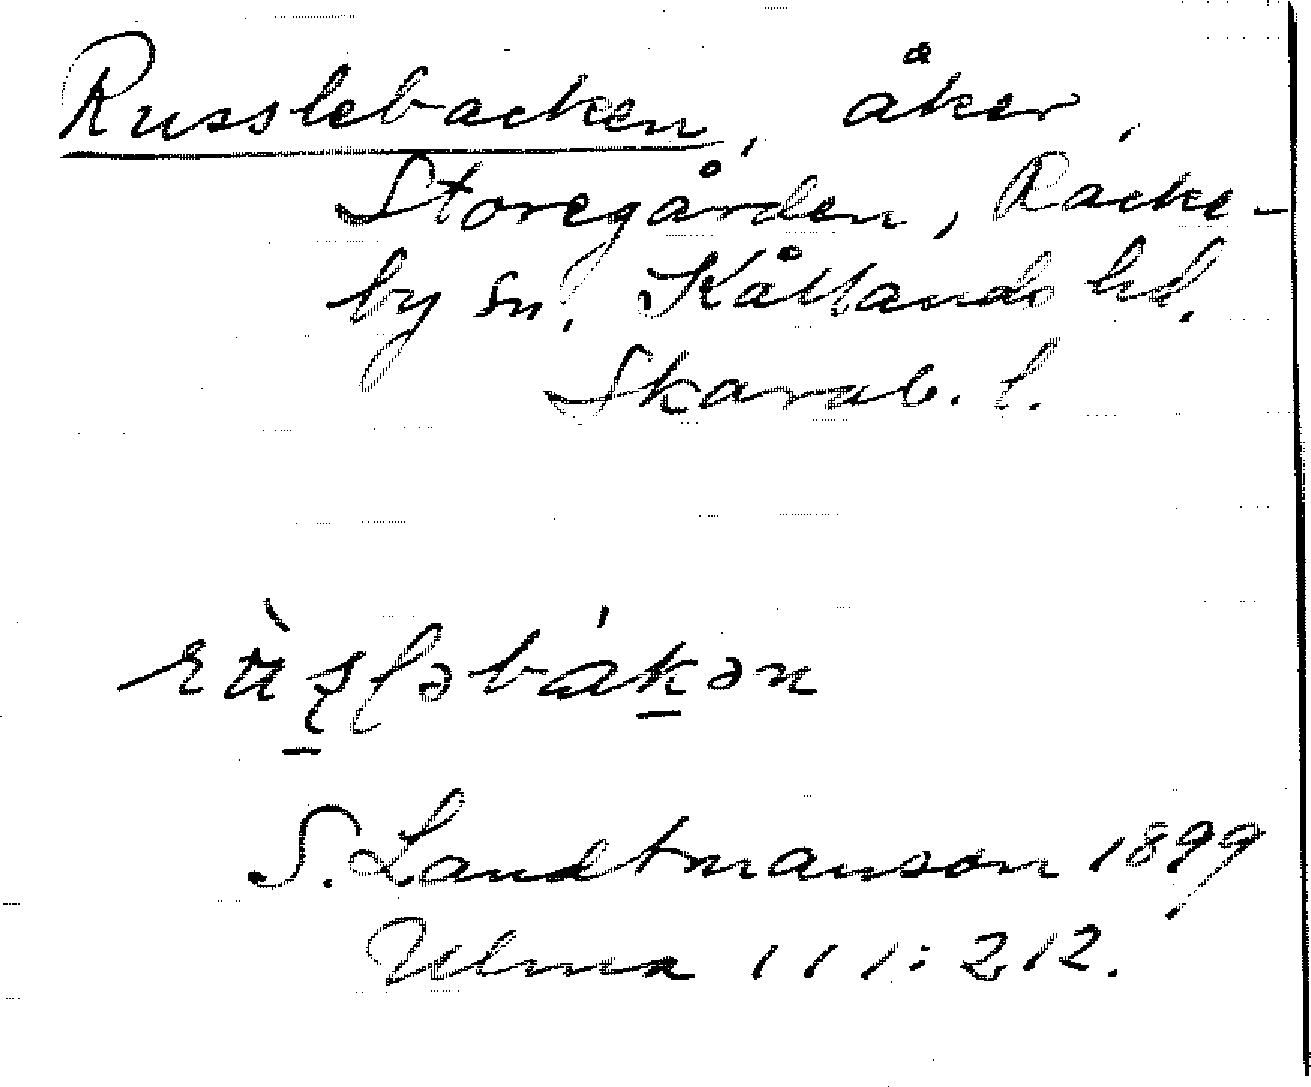 Russlebacken, åker,
Storegården, Racke-
by sn. Kållands hd.
Skarab. l.
S. Landtmanson 1899
Ulma 111:212.